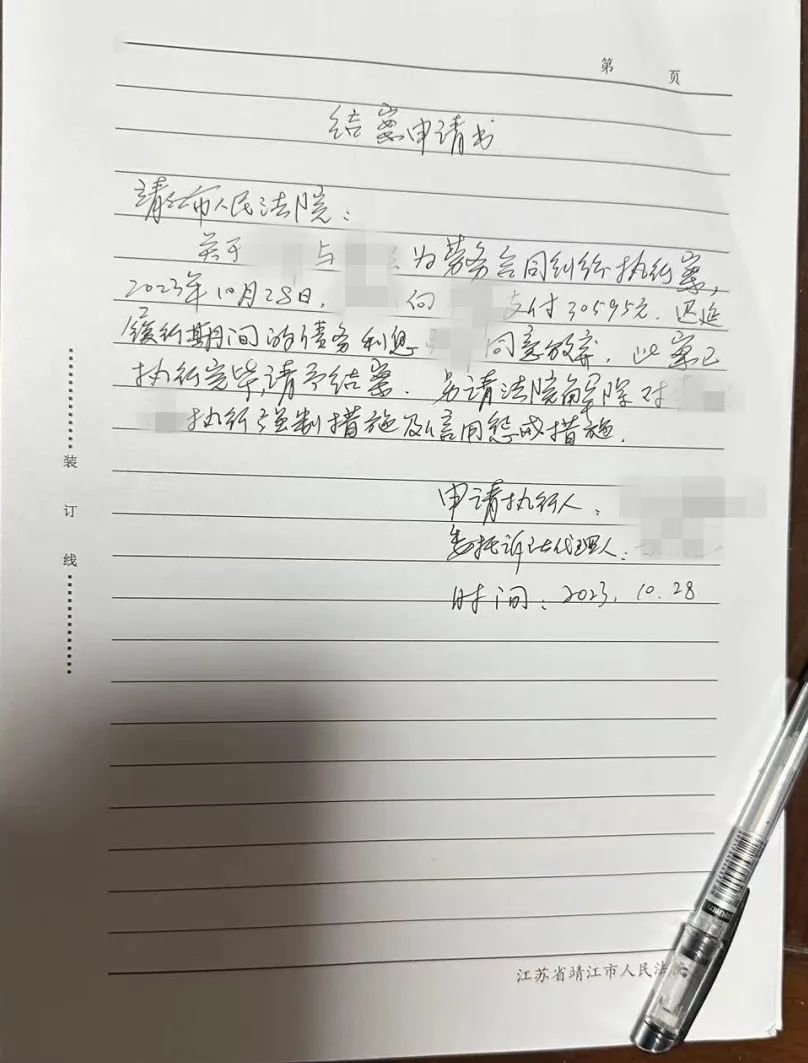 第 页
结案申请书
靖江市人民法院：
关于 与 为劳务合同纠纷执行案，
2023年10月28日， 向 支付30595元. 迟延
履行期间的债务利息 同意放弃，此案已
执行完毕，请予结案. 另请法院解除对
执行强制措施及信用惩戒措施.
申请执行人：
委托诉讼代理人：
时间：2023.10.28
装订线
江苏省靖江市人民法院
trainer